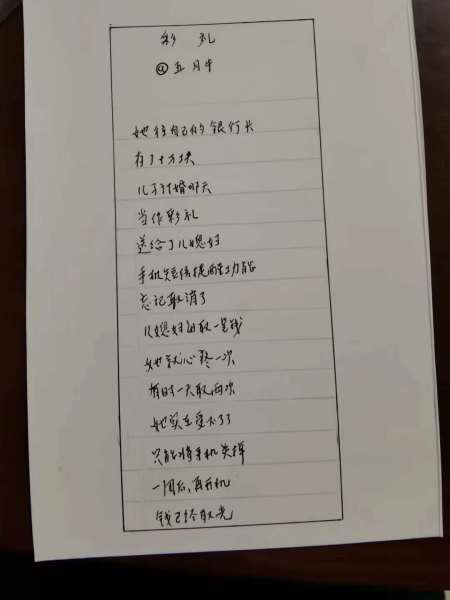 彩礼
@五月牛
她往自己的银行卡
存了十万块
儿子订婚那天
当作彩礼
送给了儿媳妇
手机短信提醒功能
忘记取消了
儿媳妇每取一笔钱
她就心疼一次
有时一天取两次
她实在受不了了
只能将手机关掉
一周后,再开机
钱已经取光